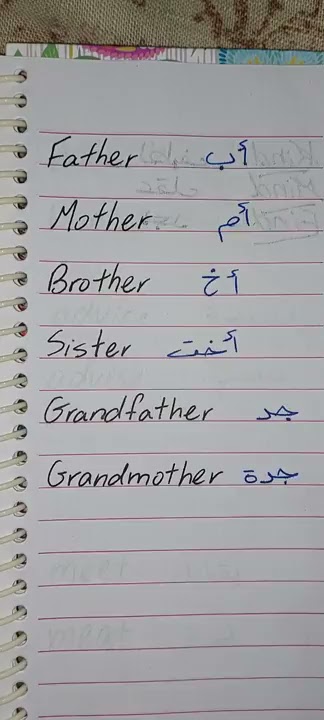 Father أب
Mother أم
Brother أخ
Sister أخت
Grandfather جد
Grandmother جدة